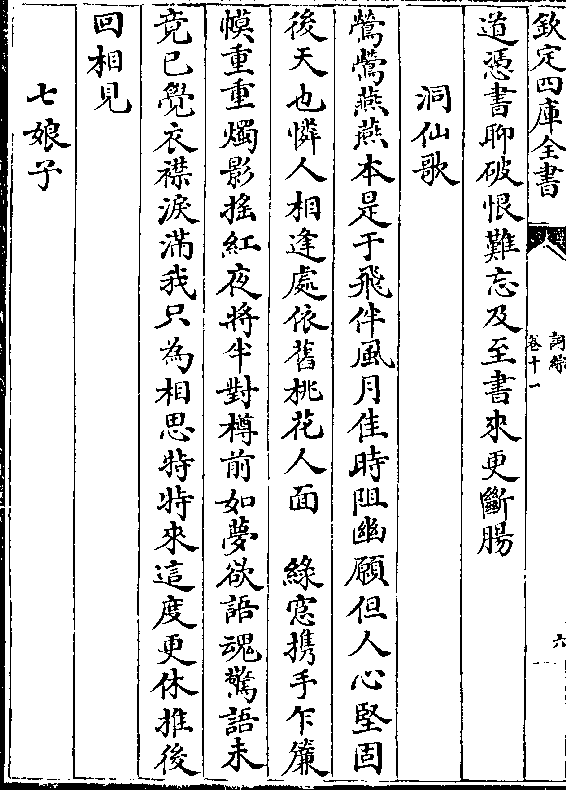 欽定四庫全書
詞綜
卷十一
六
道憑書聊破恨難忘及至書來更斷腸
洞仙歌
鶯鶯燕燕本是于飛伴風月佳時阻幽願但人心堅固
後天也憐人相逢處依舊桃花人面　綠窻携手乍簾
幙重重燭影揺紅夜將半對樽前如夢欲語魂驚語未
竟已覺衣襟淚滿我只為相思特特來這度更休推後
回相見
七娘子